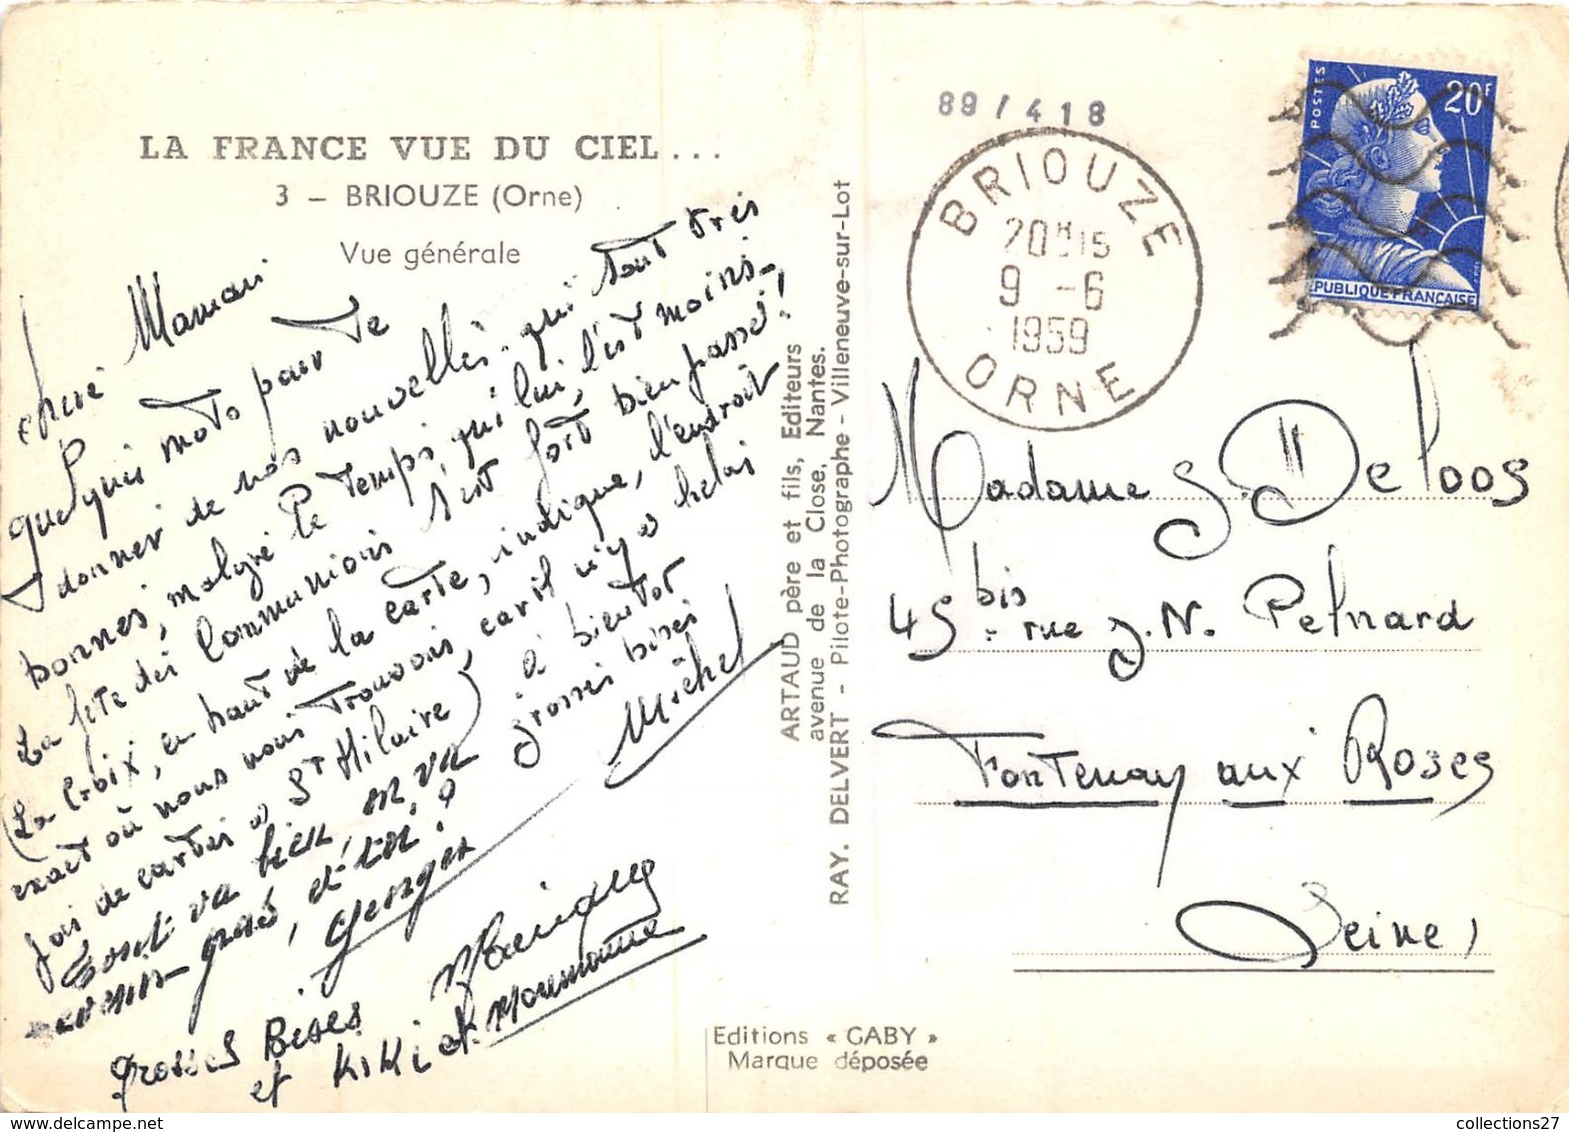 LA FRANCE VUE DU CIEL...
3 – BRIOUZE (Orne)
Vue générale
Chère Maman
Quelques mots pour te
donner de nos nouvelles qui sont très
bonnes, malgré le temps qui lui, l'est moins.
La fête des Communions s'est fort bien passé!
(La Croix, en haut de la carte, indique, l'endroit
exact où nous nous trouvons, car il n'y a hélas
pas de cartes à St Hilaire) à bientôt
grosses bises
Michel
tout va bien, on va
venir pas, et toi?
Georges
Grosses Bises
et KiKi et Moumoune
89 / 418
BRIOUZE
20H15
9 -6
1959
ORNE
POSTES
20F
REPUBLIQUE FRANCAISE
ARTAUD père et fils, Editeurs
avenue de la Close, Nantes.
RAY. DELVERT - Pilote-Photographe - Villeneuve-sur-Lot
Madame S. Deloos
45 bis rue J.N. Pelnard
Fontenay aux Roses
Seine)
Editions « GABY »
Marque déposée
collections27